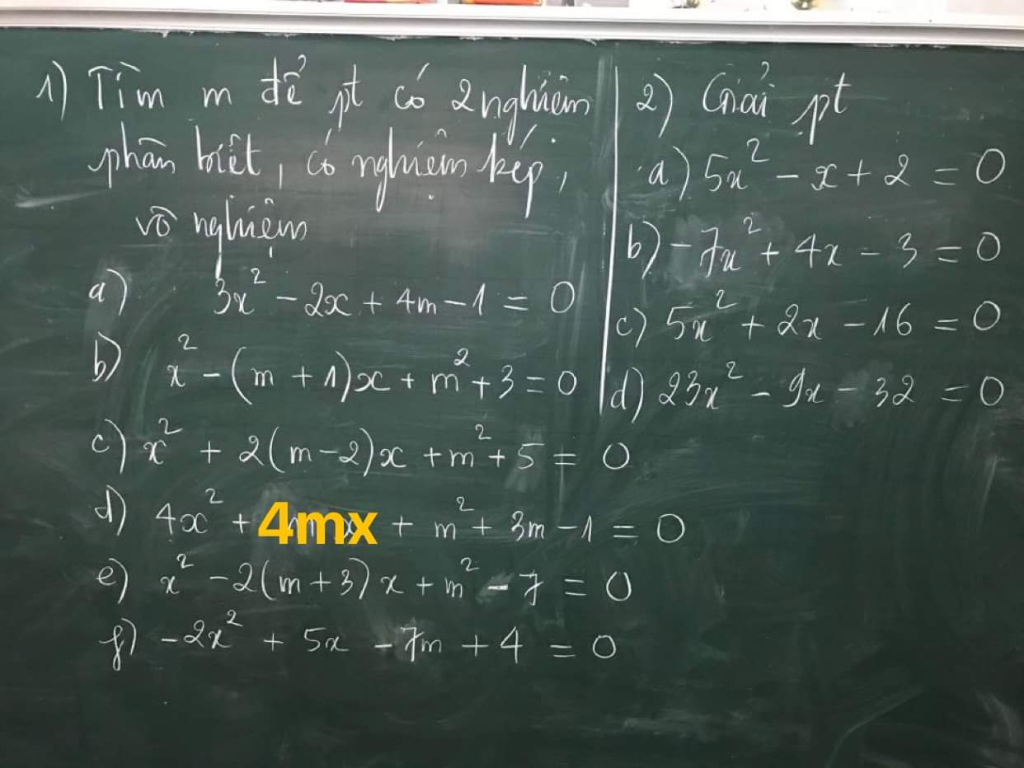 1) Tìm m để pt có 2 nghiệm
phân biệt, có nghiệm kép,
vô nghiệm
a) 3x² - 2x + 4m - 1 = 0
b) x² - (m + 1)x + m² + 3 = 0
c) x² + 2(m - 2)x + m² + 5 = 0
d) 4x² + 4mx + m² + 3m - 1 = 0
e) x² - 2(m + 3)x + m² - 7 = 0
f) -2x² + 5x - 7m + 4 = 0
2) Giải pt
a) 5x² - x + 2 = 0
b) -7x² + 4x - 3 = 0
c) 5x² + 2x - 16 = 0
d) 23x² - 9x - 32 = 0